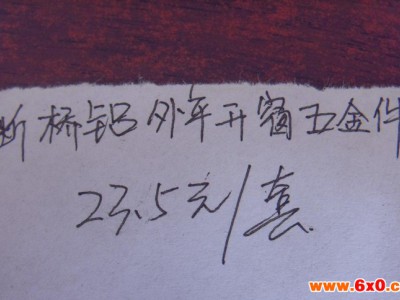 断桥铝外平开窗五金件
23.5元/套
www.6x0.c